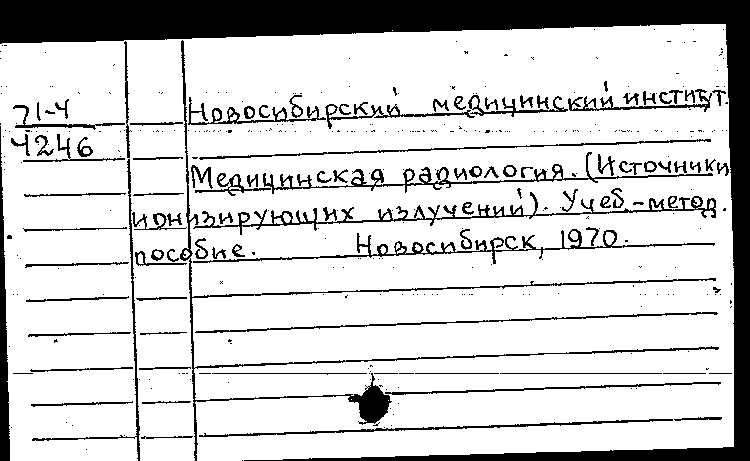 71-4
4246
Новосибирский медицинский институт.
Медицинская радиология. (Источники
ионизирующих излучений). Учеб.-метод.
пособие. Новосибирск, 1970.